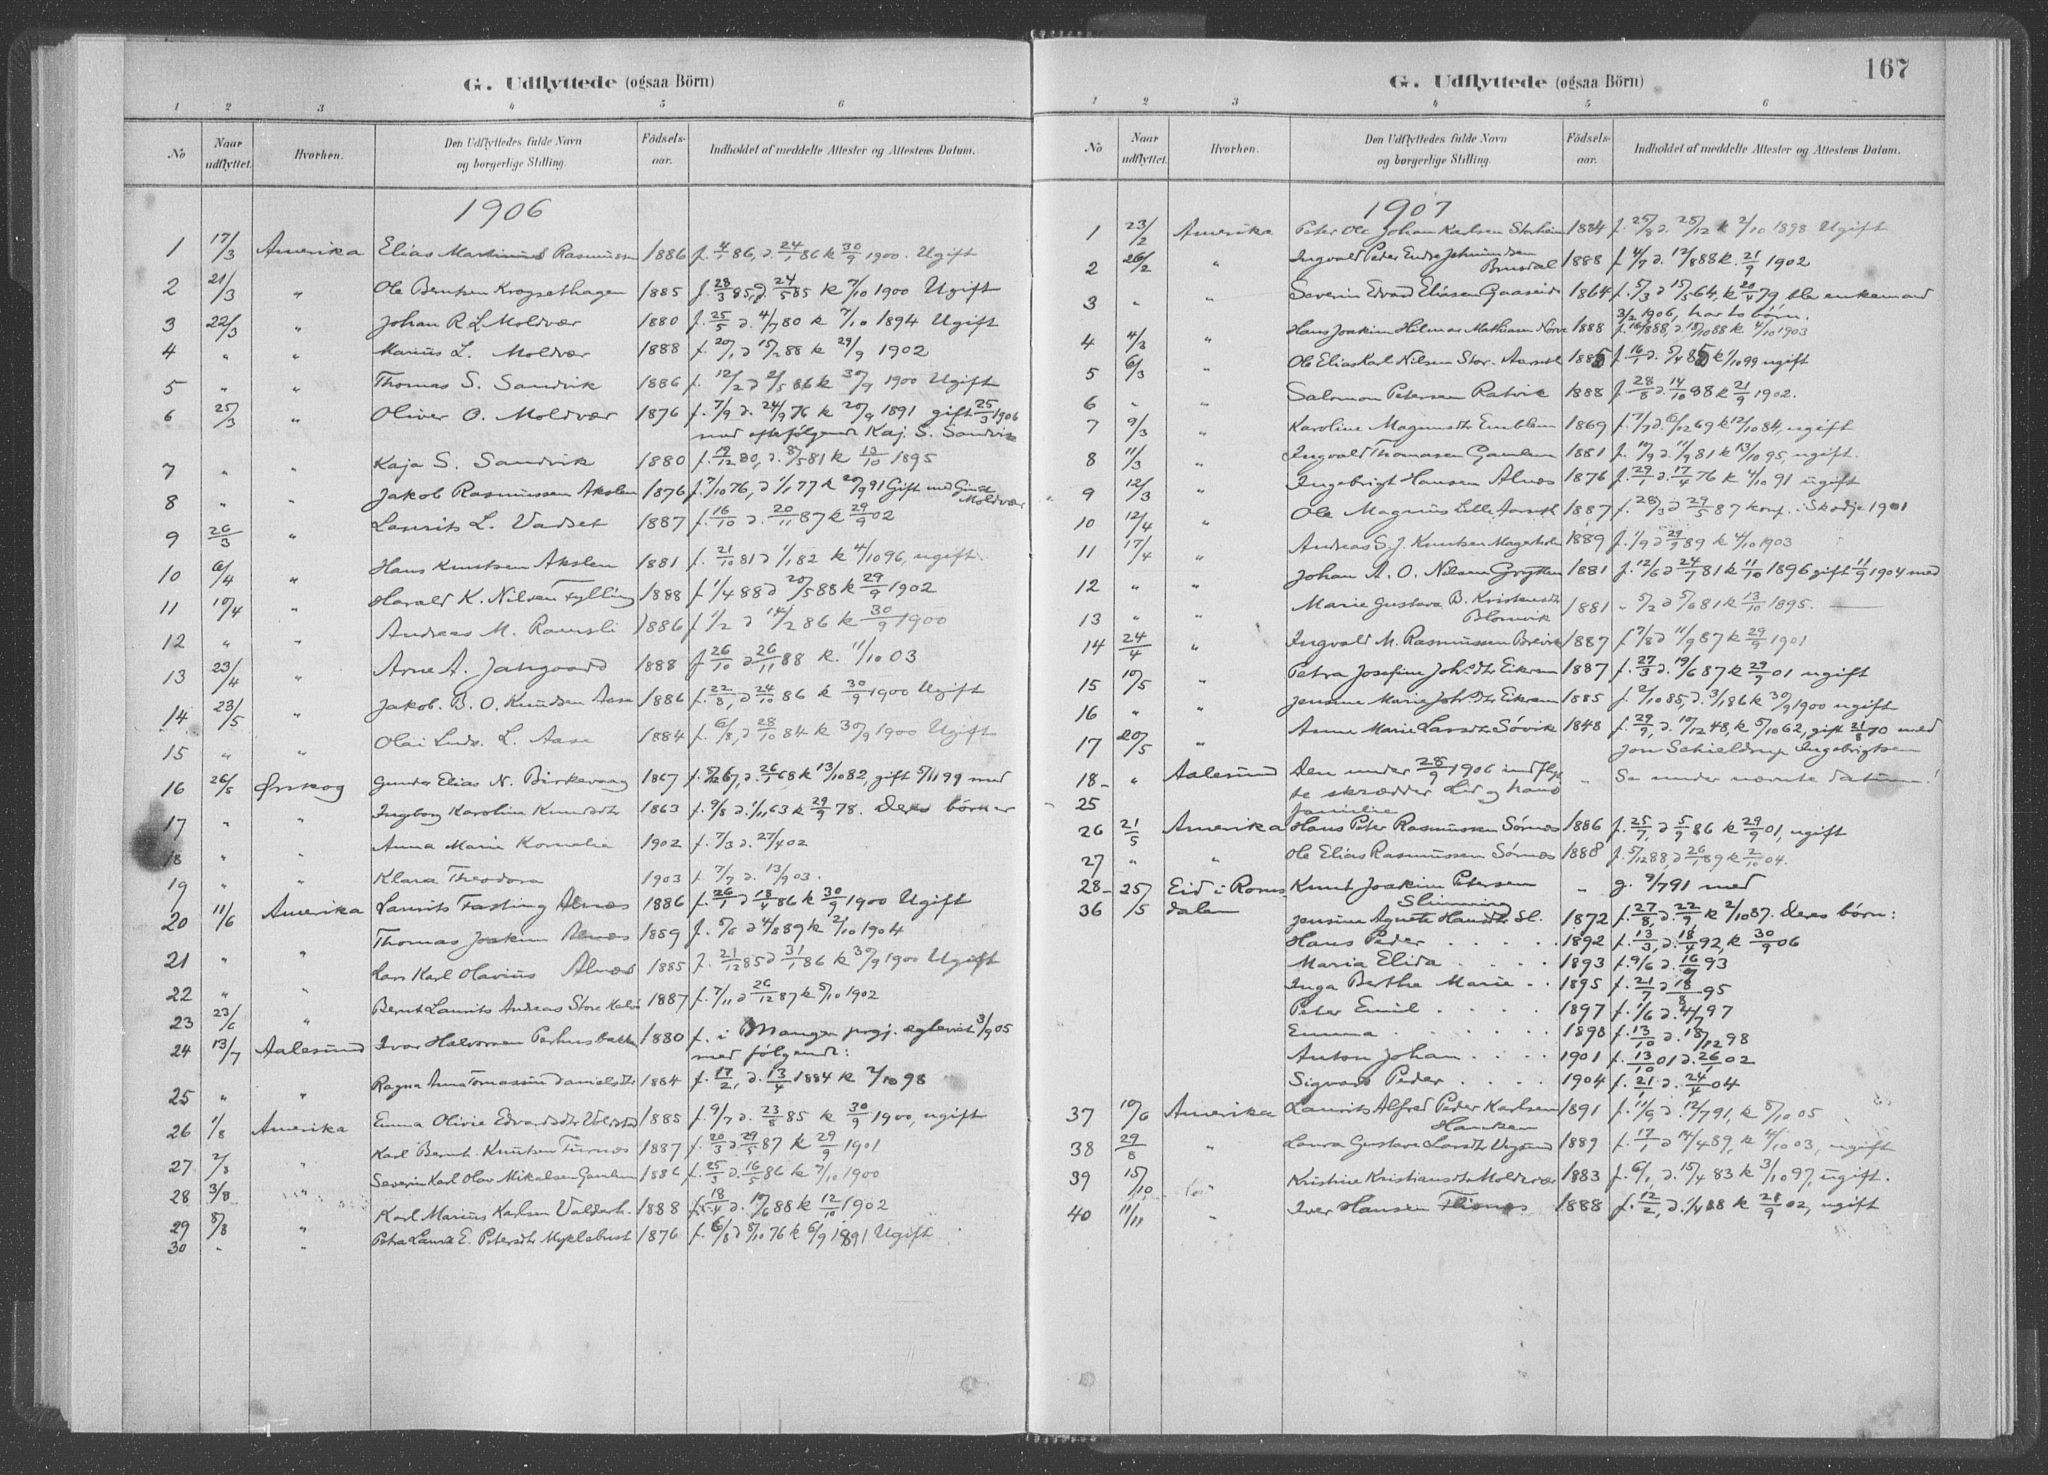 G. Udflyttede (ogsaa Börn)
1 2 3 4 5 6
No Naar udflyttet. Hvorhen. Den Udflyttedes fulde Navn og borgerlige Stilling. Fødsels-aar. Indholdet af meddelte Attester og Attestens Datum.
1906
1 17/3 Amerika Elias Martinus Rasmussen 1886 f. 4/1 86, d 24/1 86 k 30/9 1900. Ugift
2 21/3 " Ole Berntsen Krogsethagen 1885 f. 28/3 85, d. 24/5 85 k 7/10 1900 Ugift
3 22/3 " Johan R. L. Moldvær 1880 f. 25/5 d. 4/7 80 k 7/10 1894 Ugift
4 " " Marius L. Moldvær 1888 f. 20/1 d 15/2 88 k 29/9 1902
5 " " Thomas S. Sandvik 1886 f. 12/2 d 2/5 86 k 30/9 1900 Ugift
6 25/3 " Oliver O. Moldvær 1876 f. 7/9 d. 24/9 76 k 20/9 1891 gift 25/3 1906
med efterfølgende Kaj. S. Sandvik
7 " " Kaja S. Sandvik 1880 f. 19/12 80, d. 8/5 81 k 13/10 1895
8 " " Jakob Rasmussen Akslen 1876 f. 7/10 76, d 1/1 77 k 20/9 91 Gift med
Moldvær
9 26/3 " Laurits L. Vadset 1887 f. 16/10 d. 20/11 87 k 29/9 02
10 6/4 " Hans Knutsen Akslen 1881 f. 21/10 81 d 1/1 82 k 4/10 96, ugift.
11 10/4 " Harald K. Nilsen Fylling 1888 f 1/4 88 d 20/5 88 k 29/9 1902
12 " " Andreas M. Ramsli 1886 f 1/2 d 14/2 86 k 30/9 1900
13 23/4 " Arne A. Jangaard 1888 f 26/10 d 26/11 88 k. 11/10 03
14 23/5 " Jakob. B. O. Knudsen Aase 1886 f. 22/8, d 24/10 86 k 30/9 1900 Ugift
15 " " Olai Ludv. L. Aase 1884 f. 6/8, d 28/10 84 k 30/9 1900 Ugift
16 26/5 Ørskog Gunder Elias N. Birkevaag 1867 f. 5/12 67, d. 26/1 68 k 13/10 82, gift 5/11 99 med
17 " " Ingborg Karoline Knudsdtr 1863 f. 9/8 d. 1/11 63 k 29/9 78. Deres börn er
18 " " Anna Marie Kornelie 1902 f. 7/3 d. 27/4 02
19 " " Klara Theodora 1903 f. 7/7 d. 13/9 03.
20 11/6 Amerika Laurits Fasting Alnæs 1886 f. 26/1 d 18/4 86 k 30/9 1900 Ugift
21 " " Thomas Joakim Alnæs 1889 f. 5/6 d 4/8 89 k 2/10 1904
22 " " Lars Karl Olavius Alnæs 1885 f. 21/12 85 d 31/1 86 k 30/9 1900 Ugift
23 23/6 " Bernt Laurits Andreas Store 1887 f. 7/11 d 26/12 87 k 5/10 1902
24 13/7 Aalesund Ivar Halvorsen Perhusbakken 1880 f. i Manger prgj. ægteviet 3/9 05
med følgende:
25 " " Ragna Anna Tomassine Danielsdtr 1884 f. 17/2, d. 13/4 1884 k 2/10 98
26 1/8 Amerika Emma Olivie Edvardsdtr 1885 f. 9/7 d. 23/8 85 k 30/9 1900, ugift
27 2/8 " Karl Bernt Knutsen Furnæs 1887 f. 20/3 d 29/5 87 k 29/9 1901
28 3/8 " Severin Karl Olav Mikalsen Gamlem 1886 f. 25/3 d. 16/5 86 k 7/10 1900
29 8/8 " Karl Marius Karlsen 1888 f. 18/4 d. 10/6 88 k 12/10 1902
30 " " Petra Laura E. Petersdtr Myklebust 1876 f. 6/8 d 8/10 76 k 6/9 1891 Ugift.
167
G. Udflyttede (ogsaa Börn)
1 2 3 4 5 6
No Naar udflyttet. Hvorhen. Den Udflyttedes fulde Navn og borgerlige Stilling. Fødsels-aar. Indholdet af meddelte Attester og Attestens Datum.
1907
1 23/2 Amerika Peter Ole Johan Karlsen Storheim 1884 f. 25/8 d. 25/12 k 2/10 1898 Ugift
2 26/2 " Ingvald Peder Endre Johnundsen
Brusdal 1888 f 4/7 d. 12/8 88 k. 21/9 1902
3 " " Severin Edvard Eliasen Gaaseide 1864 f. 5/3 d 15/5 64, k 20/4 79, blev enkemand
3/2 1906, har to börn.
4 4/3 " Hans Joakim Hilmar Mathisen Nörve 1888 f. 16/8 88, d. 15/10 88 k 4/10 1903
5 6/3 " Ole Elias Karl Nilsen Stor-Aarseth 1885 f. 16/1 d. 5/4 85 k 1/10 99 ugift
6 " " Salomon Petersen Ratvik 1888 f. 28/8 d. 14/10 88 k 21/9 1902.
7 9/3 " Karoline Magnusdtr Emblem 1869 f. 7/7 d. 6/12 69 k 12/10 84, ugift
8 11/3 " Ingvald Thomasen Gamlem 1881 f. 19/9 d. 11/9 81 k 13/10 95, ugift.
9 12/3 " Ingebrigt Hansen Alnæs 1876 f. 29/1 d. 17/4 76 k 4/10 91 ugift
10 12/4 " Ole Magnus Lille Aarseth 1887 f. 28/3 d 29/5 87 konf. i Skodje 1901
11 17/4 " Andreas S. J. Knutsen Magerholm 1889 f. 1/9 d 29/9 89 k 4/10 1903
12 " " Johan A. O. Nilsen Grytten 1881 f. 12/6 d 24/7 81 k 11/10 1896 gift 11/9 1904 med
13 " " Marie Gustava B. Kristensdtr
Blomvik 1881 " 5/2 d 5/6 81 k 13/10 1895. —
14 24/4 " Ingvald M. Rasmussen Breivik 1887 f 7/8 d 11/9 87 k 29/9 1901
15 10/5 " Petra Josefine Joh.dtr Eikrem 1887 f. 27/3 d. 19/6 87 k 29/9 01 ugift
16 " " Jensine Marie Joh.dtr Eikrem 1885 f. 2/10 85, d. 3/1 86 k 30/9 1900 ugift
17 20/5 " Anne Marie Larsdtr Sövik 1848 f. 29/9, d. 10/12 48, k 5/10 62, gift 21/8 70 med
Jon Schieldrup Ingebrigtsen
18- " Aalesund Den under 28/9 1906 indflyt- " Se under nævnte datum!
25 te skrædder Lid og hans
familie
26 21/5 Amerika Hans Peter Rasmussen Sörnæs 1886 f. 25/7, d 5/9 86 k 29/9 01, ugift
27 " " Ole Elias Rasmussen Sörnæs 1888 f. 5/12 88 d 26/1 89 k 2/10 04.
28- 25/5 Eid i Roms Knut Joakim Petersen " g. 9/7 91 med
36 dalen Slinning
Jensine Agnete Hansdtr Sl. 1872 f. 27/8, d. 22/9 k 2/10 87. Deres börn:
Hans Peder . . . . . 1892 f. 13/3, d. 18/4 92, k 30/9 06
Maria Elida . . . . 1893 f. 9/6 d. 16/7 93
Inga Berthe Marie . . 1895 f. 21/7 d 18/8 95
Peter Emil . . . . . 1897 f. 1/6 d. 4/7 97
Emma . . . . . . 1898 f. 13/10 d. 18/12 98
Anton Johan . . . . 1901 f. 13/10 01 d. 26/1 02
Sigvard Peder . . . . 1904 f. 21/1 d. 24/4 04
37 10/6 Amerika Laurits Alfred Peder Karlsen
Hanken 1891 f. 11/9 d. 12/7 91, k. 8/10 05
38 29/8 " Laura Gustava Larsdtr Vegsund 1889 f. 17/1 d 14/4 89, k. 4/10 03, ugift
39 15/10 " Kristine Kristiansdtr Moldvær 1883 f. 6/1, d. 15/4 83 k 3/10 97, ugift.
40 11/11 " Iver Hansen 1888 f. 12/2, d. 1/4 88 k 21/9 02, ugift